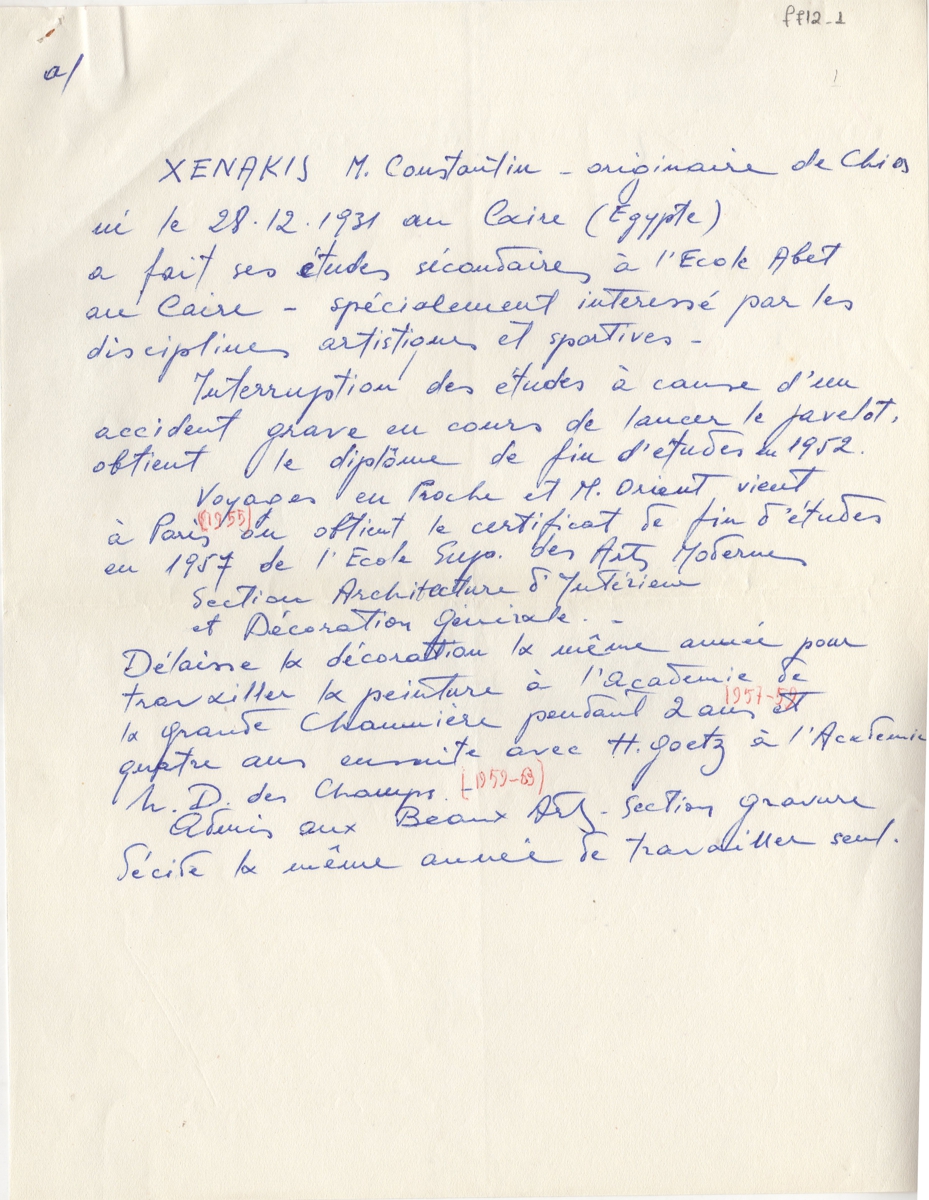 ff12-1
a/
1
XENAKIS M. Constantin - originaire de Chios
né le 28.12.1931 au Caire (Egypte)
a fait ses études sécondaires à l'Ecole Abet
au Caire - spécialement interessé par les
disciplines artistiques et sportives -
Interruption des études à cause d'un
accident grave en cours de lancer le javelot,
obtient le diplôme de fin d'études en 1952.
Voyages en Proche et M. Orient vient
à Paris (1955) où obtient le certificat de fin d'études
en 1957 de l'Ecole Sup. des Arts Modernes
Section Architecture d'Intérieur
et Décoration Générale. -
Délaisse la décoration la même année pour
travailler la peinture à l'Academie de
la grande Chaumière pendant 2 ans et
1957-59
quatre ans ensuite avec H. Goetz à l'Academie
N. D. des Champs. (1959-63)
Admis aux Beaux Arts - Section gravure
décide la même année de travailler seul.